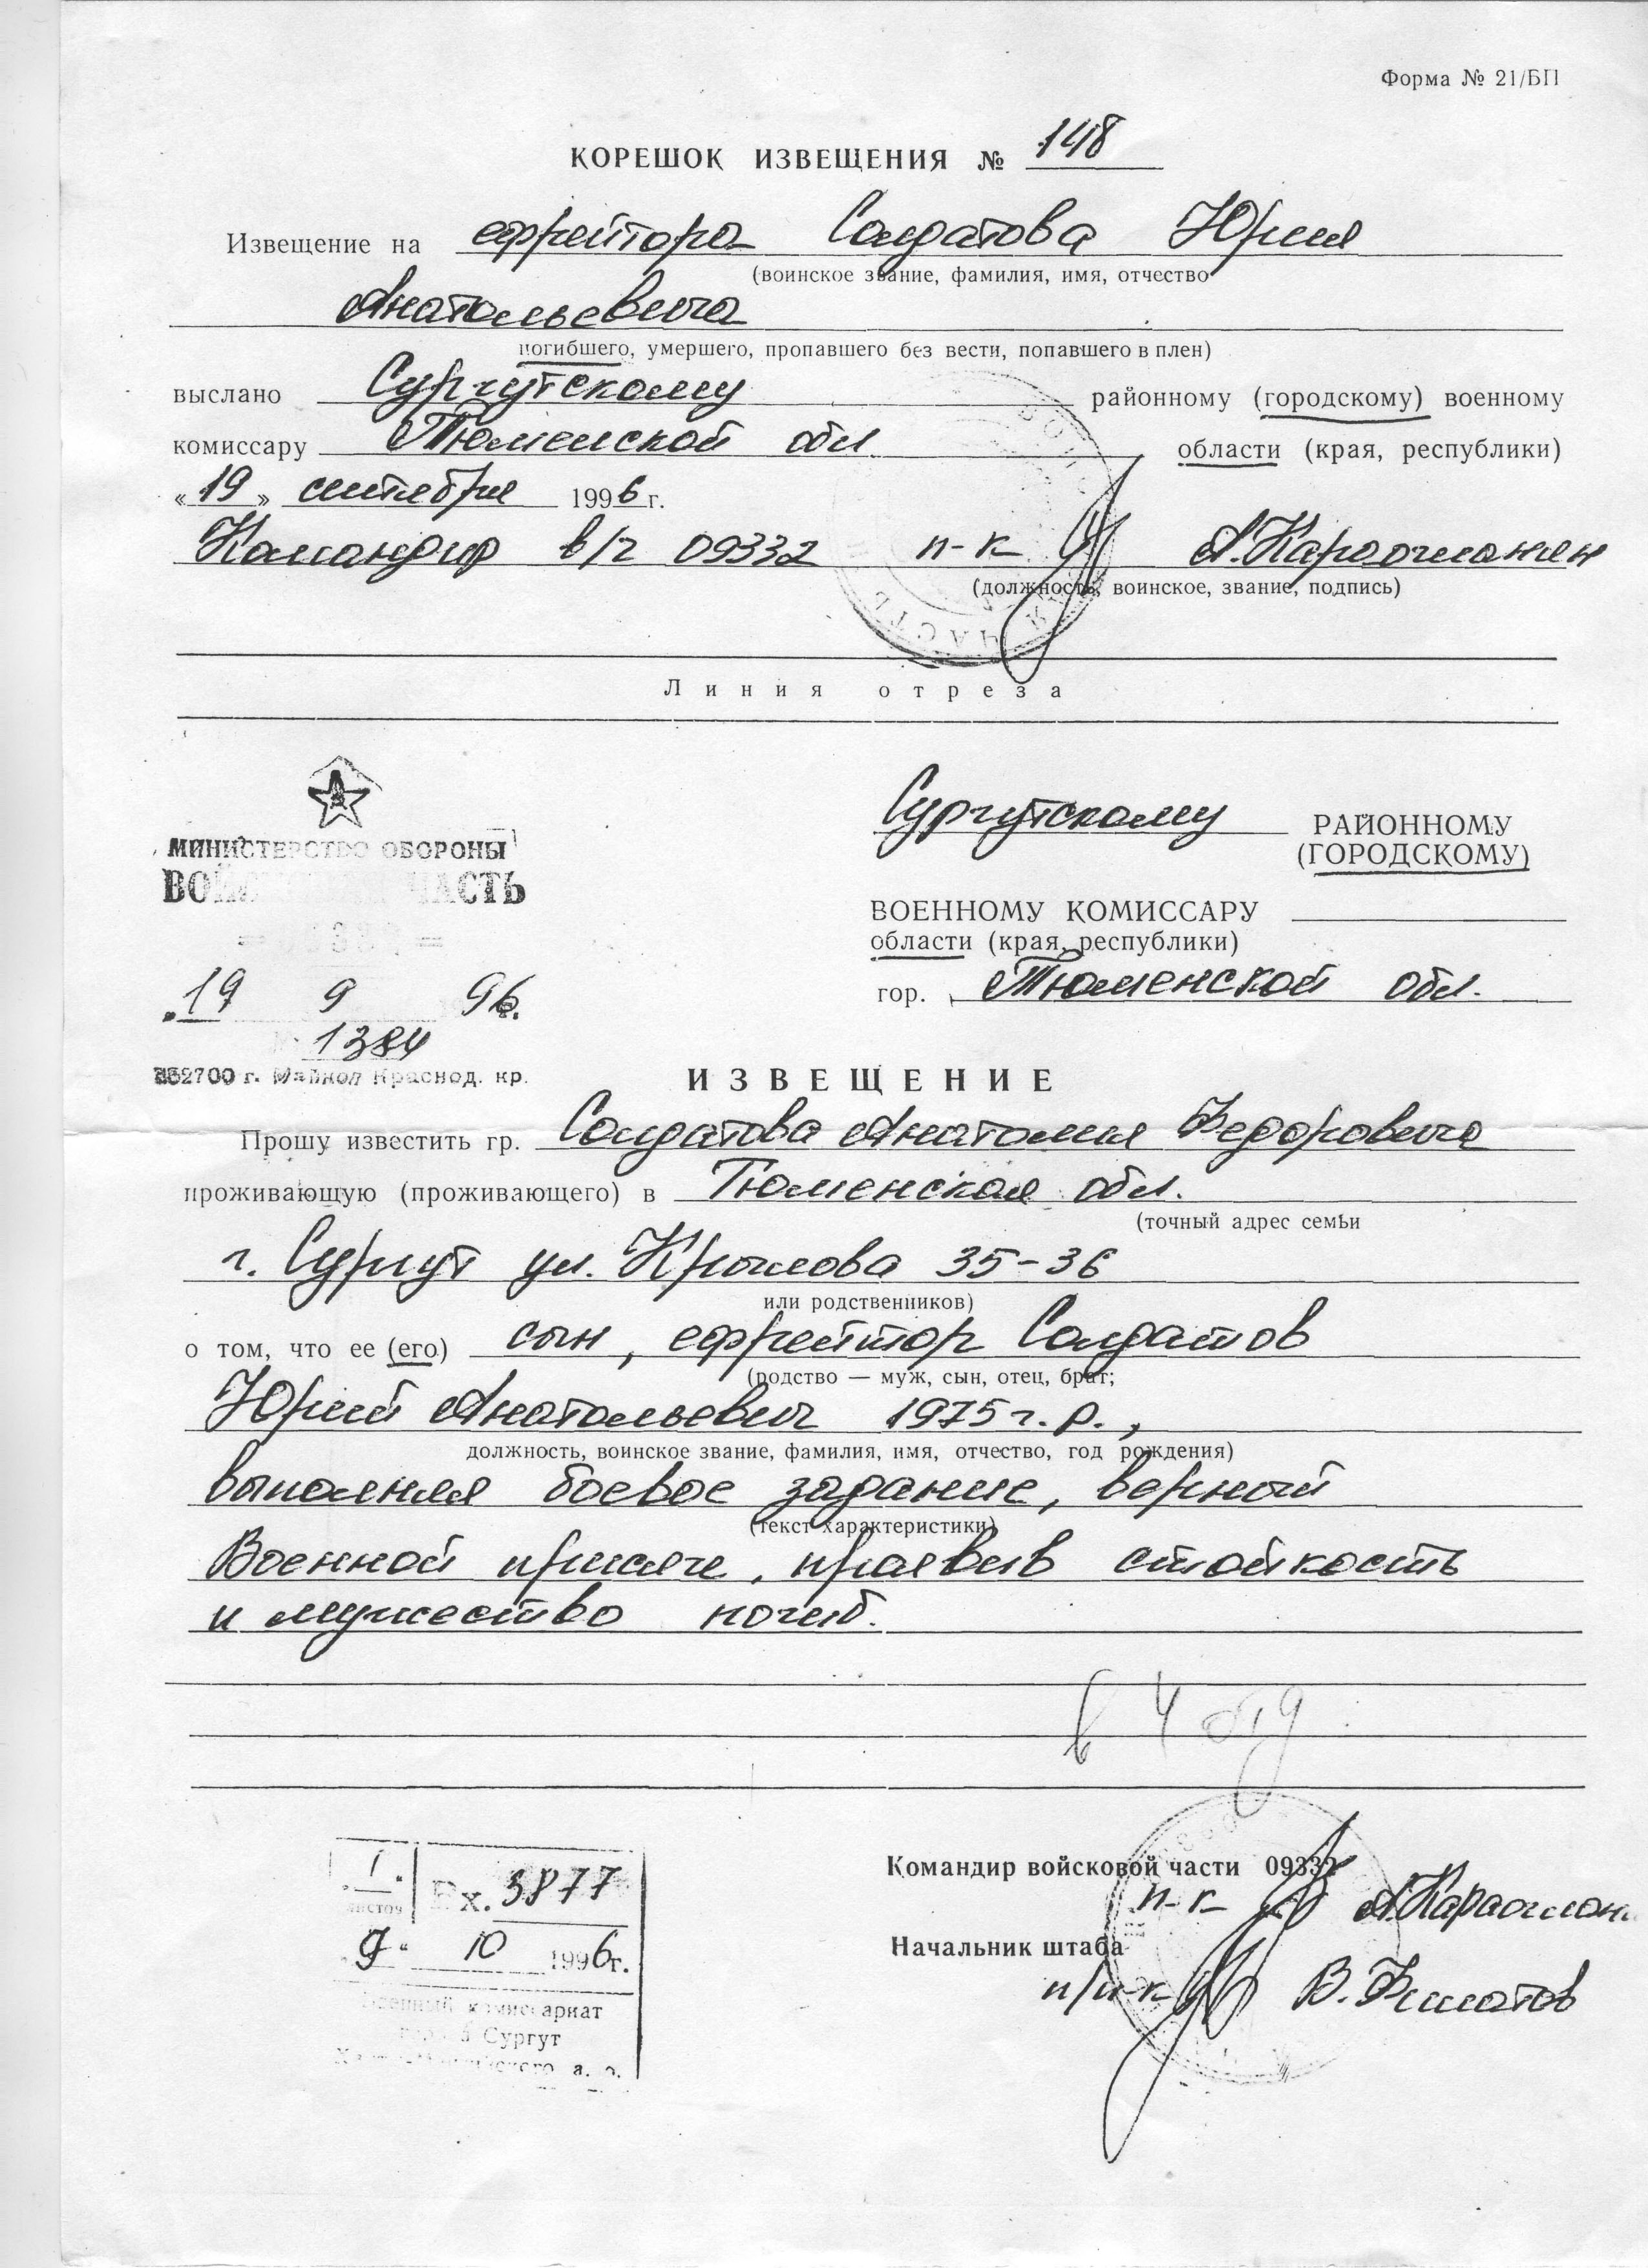 Форма № 21/БП
КОРЕШОК ИЗВЕЩЕНИЯ № 148
Извещение на ефрейтора Солдатова Юрия
(воинское звание, фамилия, имя, отчество
Анатольевича
погибшего, умершего, пропавшего без вести, попавшего в плен)
выслано Сургутскому районному (городскому) военному
комиссару Тюменской обл области (края, республики)
«19» сентября 1996 г.
Командир в/ч 09332 п-к А.Караогланян
(должность, воинское, звание, подпись)
Линия отреза
МИНИСТЕРСТВО ОБОРОНЫ
ВОЙСКОВАЯ ЧАСТЬ
19 9 96
1384
352700 г. Майкоп Краснод. кр.
Сургутскому РАЙОННОМУ
(ГОРОДСКОМУ)
ВОЕННОМУ КОМИССАРУ
области (края, республики)
гор. Тюменской обл.
ИЗВЕЩЕНИЕ
Прошу известить гр. Солдатова Анатолия Федоровича
проживающую (проживающего) в Тюменская обл.
(точный адрес семьи
г. Сургут ул. Крылова 35-36
или родственников)
о том, что ее (его) сын, ефрейтор Солдатов
(родство — муж, сын, отец, брат;
Юрий Анатольевич 1975 г.р.,
должность, воинское звание, фамилия, имя, отчество, год рождения)
выполняя боевое задание, верный
(текст характеристики)
Военной присяге, проявив стойкость
и мужество погиб.
в 4 отд
Командир войсковой части 09332
п-к
Начальник штаба
п/п-к В. Филатов
Вх. 3877
9 " 10 1996г.
Военный комиссариат
города Сургут
а. о.